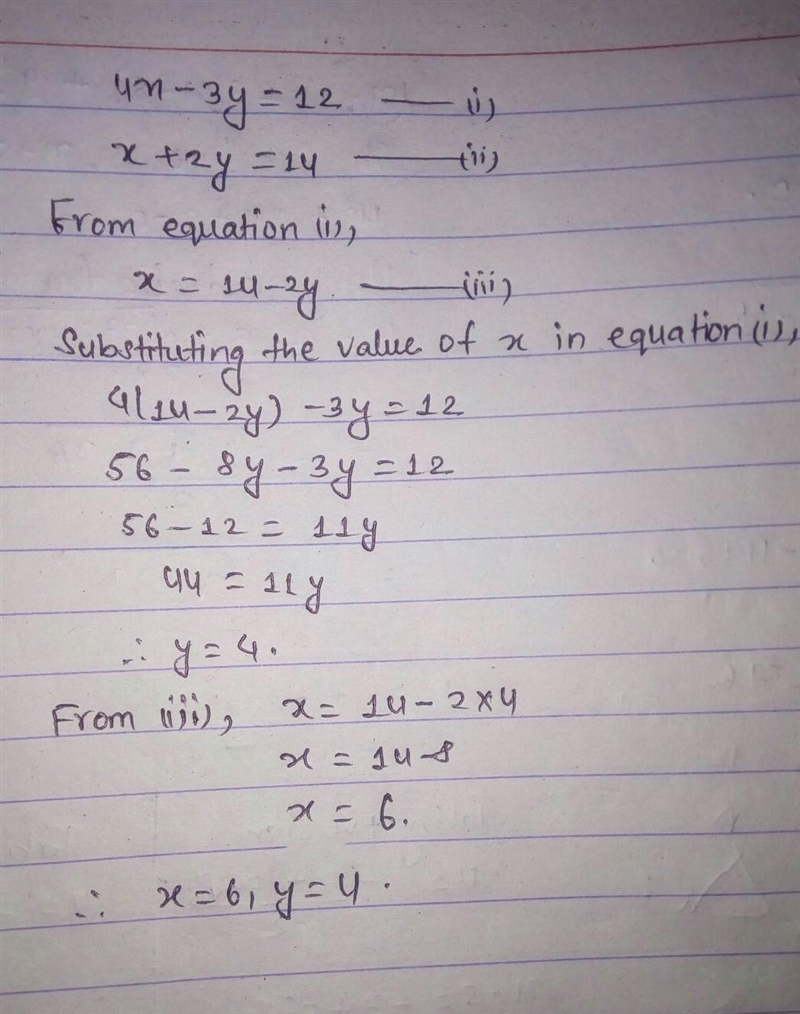 4x - 3y = 12 —— (i)
x + 2y = 14 —— (ii)
From equation (i),
x = 14 - 2y —— (iii)
Substituting the value of x in equation (i),
4(14 - 2y) - 3y = 12
56 - 8y - 3y = 12
56 - 12 = 11y
44 = 11y
∴ y = 4.
From (iii), x = 14 - 2 × 4
x = 14 - 8
x = 6.
∴ x = 6, y = 4.